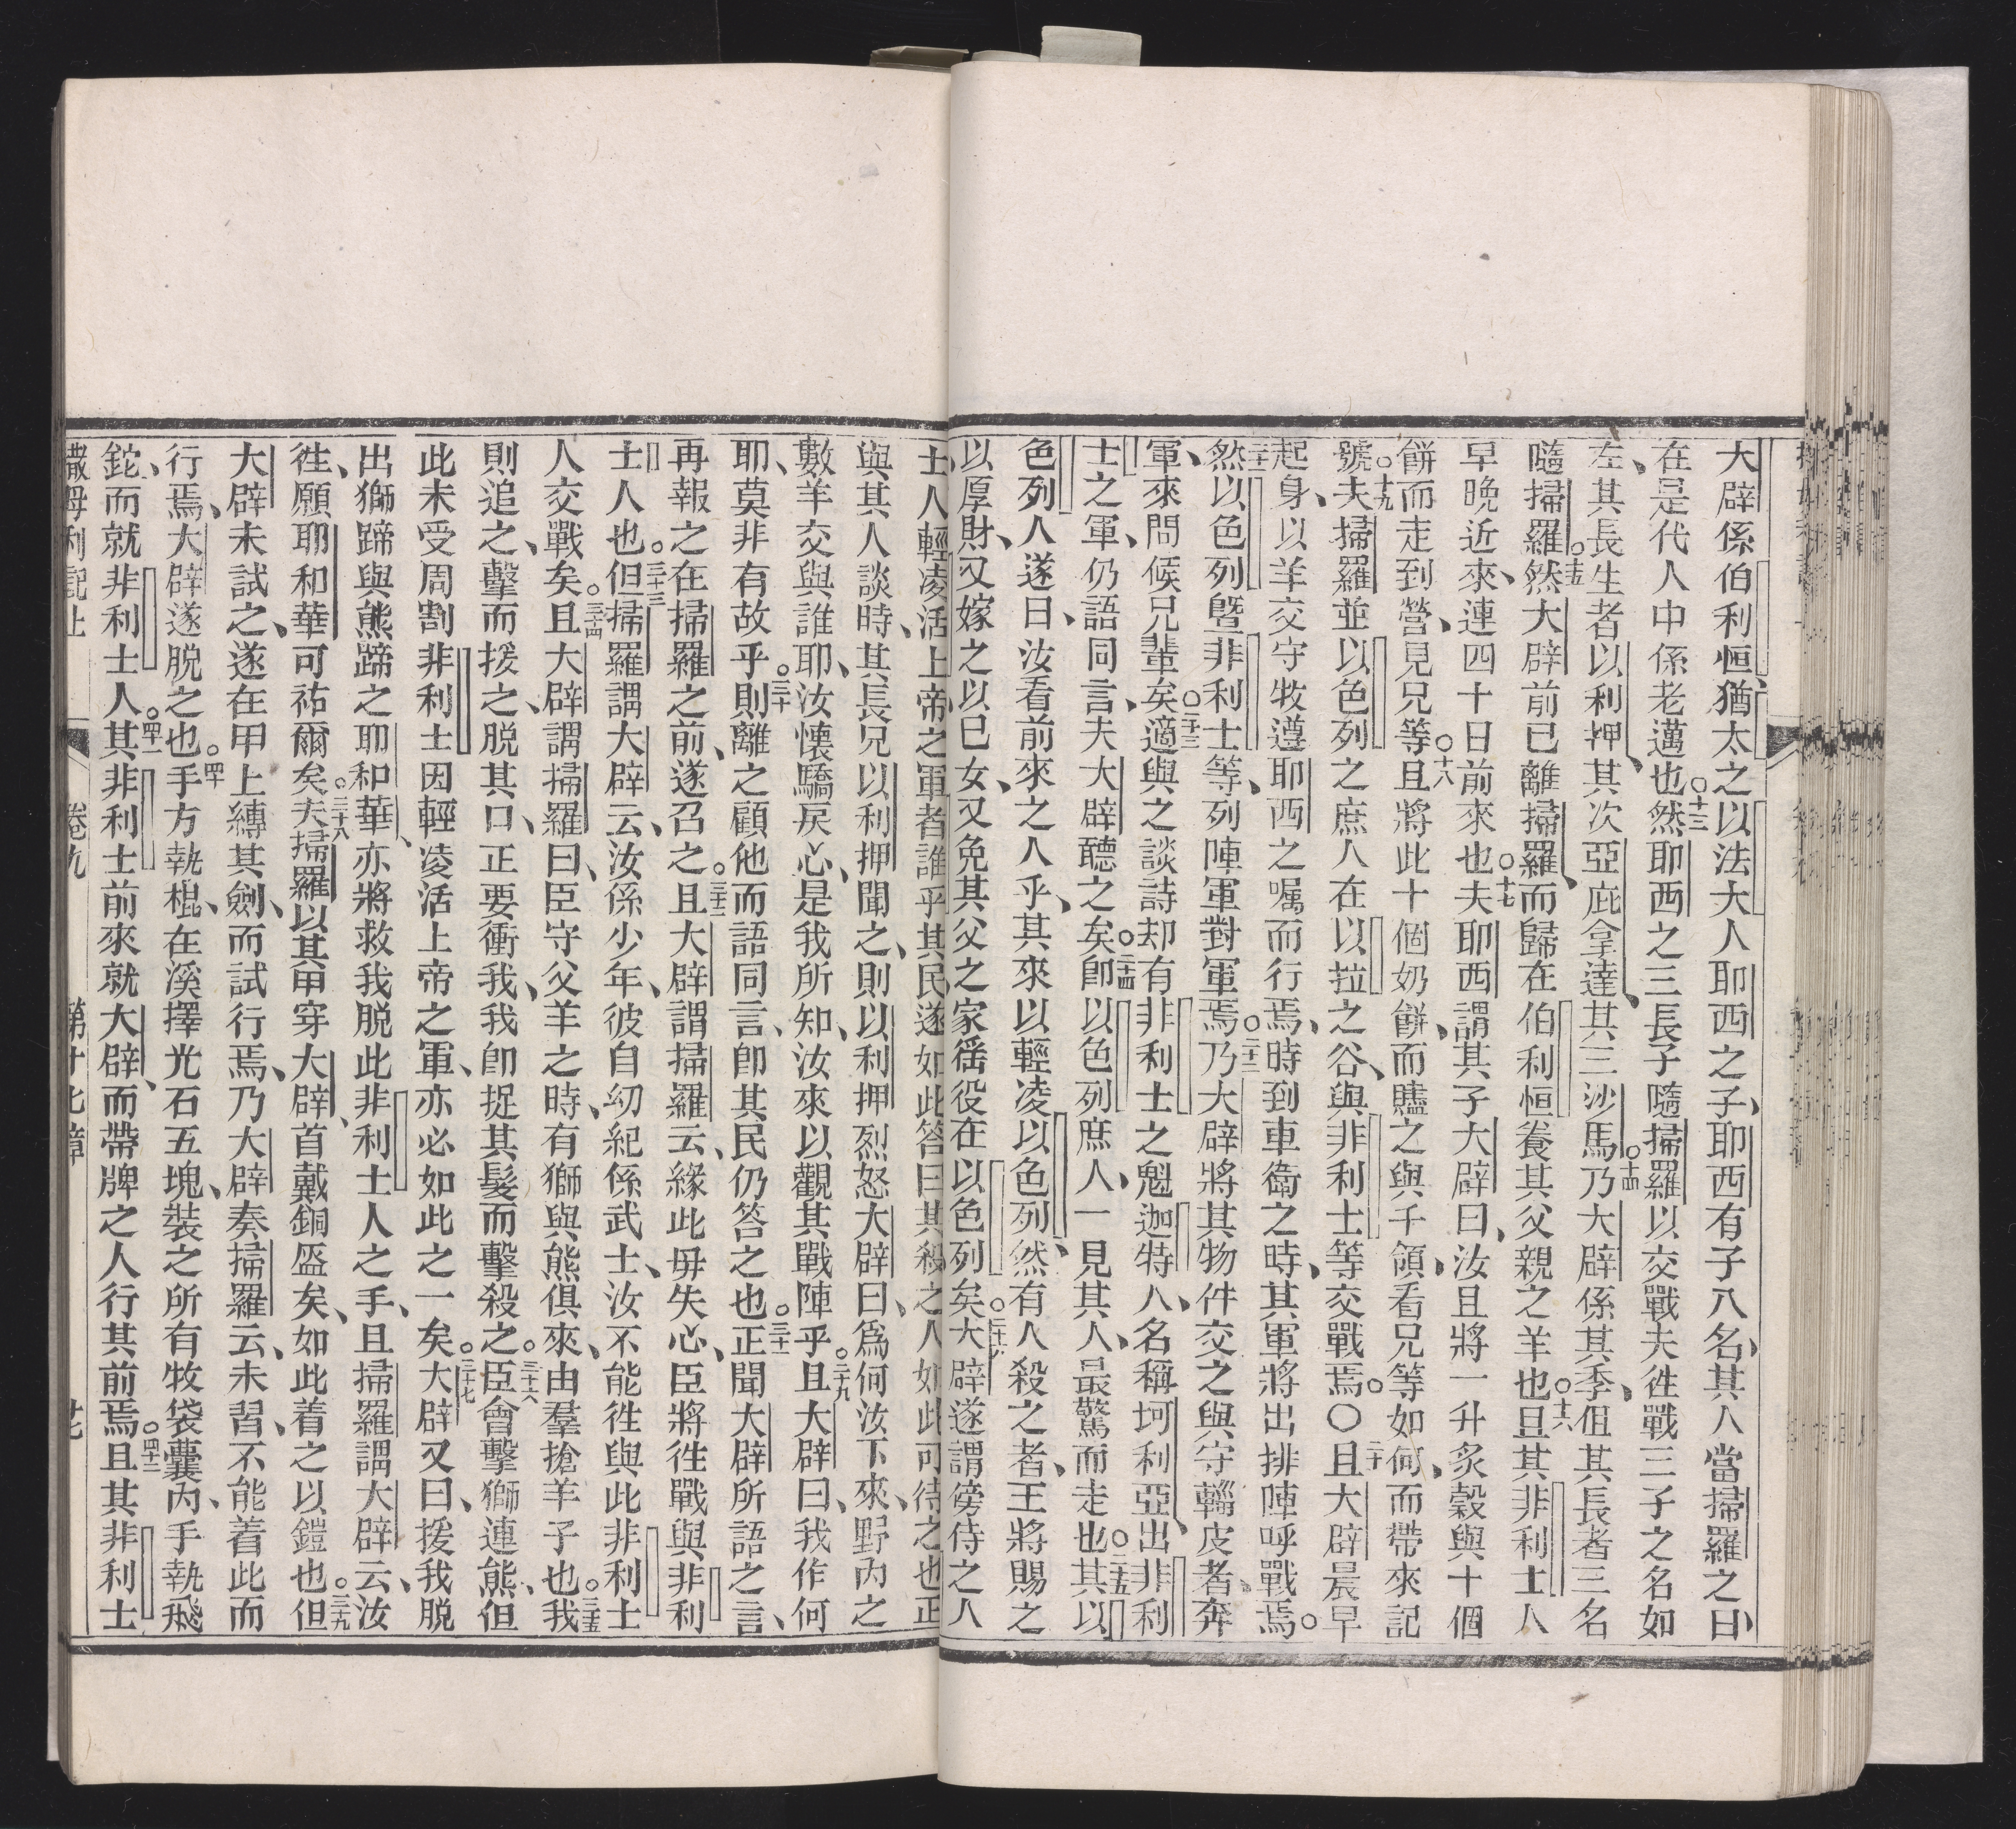 大辟係伯利恒、猶太之以法大人耶西之子、耶西有子八名、其人當掃羅之日、
在是代人中係老邁也○十三然耶西之三長子隨掃羅以交戰夫徃戰三子之名如
左、其長生者以利押、其次亞庇拿達、其三沙馬○十四乃大辟係其季、但其長者三名
隨掃羅○十五然大辟前已離掃羅、而歸在伯利恒養其父親之羊也○十六且其非利士人
早晚近來、連四十日前來也○十七夫耶西謂其子大辟曰、汝且將一升炙穀與十個
餅而走到營、見兄等○十八且將此十個奶餅、而贐之與千領、看兄等如何、而帶來記
號○十九夫掃羅並以色列之庶人在以拉之谷、與非利士等交戰焉○〇二十且大辟晨早
起身、以羊交守牧遵耶西之嘱而行焉、時到車衞之時、其軍將出排陣呼戰焉○
二十一然以色列曁非利士等、列陣軍對軍焉○二十二乃大辟將其物件交之與守輜皮者、奔
軍、來問候兄輩矣○二十三適與之談詩却有非利士之魁迦特人、名稱坷利亞、出非利
士之軍、仍語同言、夫大辟聽之矣○二十四卽以色列庶人、一見其人、最驚而走也○二十五其以
色列人遂曰、汝看前來之人乎、其來以輕凌以色列、然有人殺之者、王將賜之
以厚財、又嫁之以已女、又免其父之家徭役在以色列矣○二十六大辟遂謂傍侍之人
士人輕凌活上帝之軍者誰乎其民遂如此答曰其殺之人如此可待之也正
與其人談時、其長兄以利押聞之、則以利押烈怒大辟曰、爲何汝下來、野內之
數羊交與誰耶、汝懷驕戾心、是我所知、汝來以觀其戰陣乎○二十九且大辟曰、我作何
耶、莫非有故乎○三十則離之顧他而語同言、卽其民仍答之也○三十一正聞大辟所語之言、
再報之在掃羅之前、遂召之○三十二且大辟謂掃羅云、緣此毋失心、臣將徃戰與非利
士人也○三十三但掃羅謂大辟云、汝係少年、彼自幼紀係武士、汝不能徃與此非利士
人交戰矣○三十四且大辟謂掃羅曰、臣守父羊之時、有獅與熊俱來、由羣搶羊子也○三十五我
則追之、擊而援之、脫其口、正要衝我、我卽捉其髮而擊殺之○三十六臣會擊獅連熊、但
此未受周割非利士因輕凌活上帝之軍、亦必如此之一矣○三十七大辟又曰、援我脫
出獅蹄與熊蹄之耶和華、亦將救我脫此非利士人之手、且掃羅謂大辟云、汝
徃、願耶和華可祐爾矣○三十八夫掃羅以其甲穿大辟、首戴銅盔矣、如此着之以鎧也○三十九但
大辟未試之、遂在甲上縛其劍、而試行焉、乃大辟奏掃羅云、未習、不能着此而
行焉、大辟遂脫之也○四十手方執棍、在溪擇光石五塊、裝之所有牧袋囊內、手執飛
鉈、而就非利士人○四十一其非利士前來就大辟、而帶牌之人行其前焉○四十二且其非利士
撒母利記上 卷九 第十七章 廿七